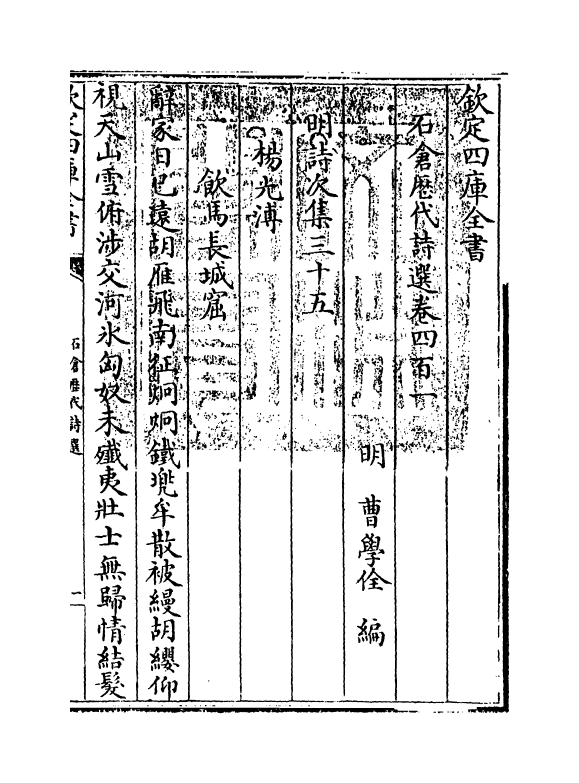 欽定四庫全書
石倉歴代詩選卷四百一
明 曹學佺 編
明詩次集三十五
楊光溥
飲馬長城窟
辭家日已遠胡雁飛南征炯炯鐵兜牟散被縵胡纓仰
視天山雪俯涉交河氷匈奴未殲夷壯士無歸情結髮
欽定四庫全書
石倉歴代詩選
一